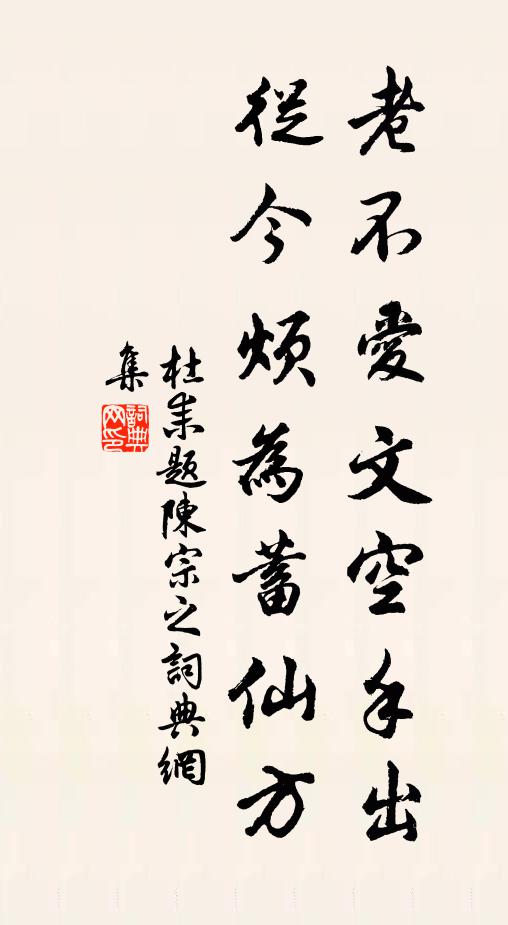 老不愛文空手出
從今煩為蓄仙方
杜耒題陳宗之詞典網
集
詞典網印